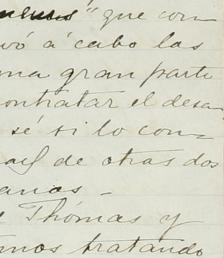 " que con
vó á cabo las
ma gran parte
ontratar el desa-
sé si lo con-
de otras dos
anos -
Thomas y
mos tratando